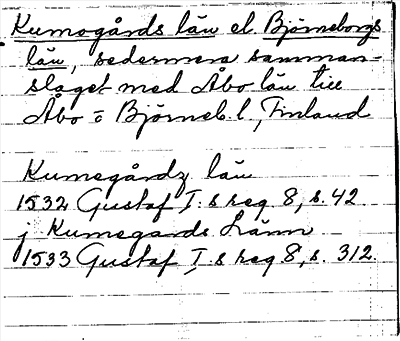 Kumogårds län el. Björneborgs
län, sedermera samman-
slaget med Åbo län till
Åbo o Björneb. l., Finland
Kumegårdz län
1532 Gustaf I:s reg. 8, s. 42
j Kumegards Länn
1533 Gustaf I:s reg 8, s. 312.